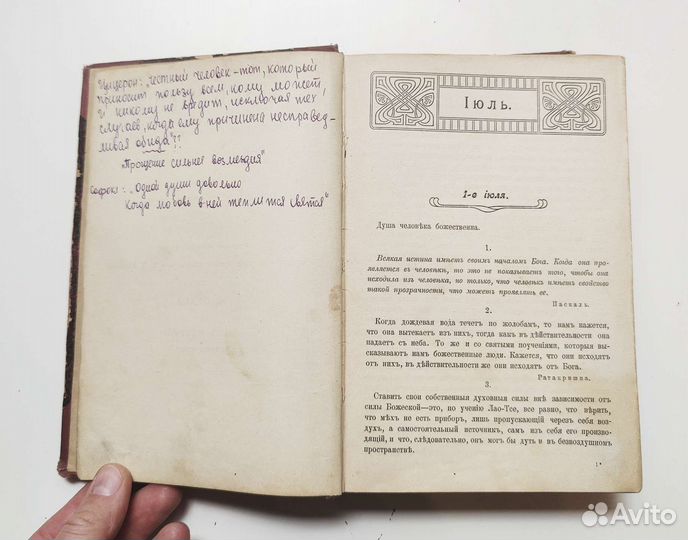 Цицерон: „Честный человек – тот, который
приносит пользу всем, кому может,
и никому не вредит, исключая тех
случаев, когда ему причинена несправед-
ливая обида"??
„Прощение сильнее возмездия"
Софокл: „Одной души довольно
Когда любовь в ней теплится святая"
Іюль.
1-е іюля.
Душа человѣка божественна.
1.
Всякая истина имѣетъ своимъ началомъ Бога. Когда она про-
является въ человѣкѣ, то это не показываетъ того, чтобы она
исходила изъ человѣка, но только, что человѣкъ имѣетъ свойство
такой прозрачности, что можетъ проявлять ее.
Паскаль.
2.
Когда дождевая вода течетъ по жолобамъ, то намъ кажется,
что она вытекаетъ изъ нихъ, тогда какъ въ дѣйствительности она
падаетъ съ неба. То же и со святыми поученіями, которыя вы-
сказываютъ намъ божественные люди. Кажется, что они исходятъ
отъ нихъ, въ дѣйствительности же они исходятъ отъ Бога.
Рамакришна.
3.
Ставить свои собственныя духовныя силы внѣ зависимости отъ
силы Божеской—это, по ученію Лао-Тсе, все равно, что вѣрить,
что мѣхъ не есть приборъ, лишь пропускающій черезъ себя воз-
духъ, а самостоятельный источникъ, самъ изъ себя его произво-
дящій, и что, слѣдовательно, онъ могъ бы дуть и въ безвоздушномъ
пространствѣ.
1*
Avito